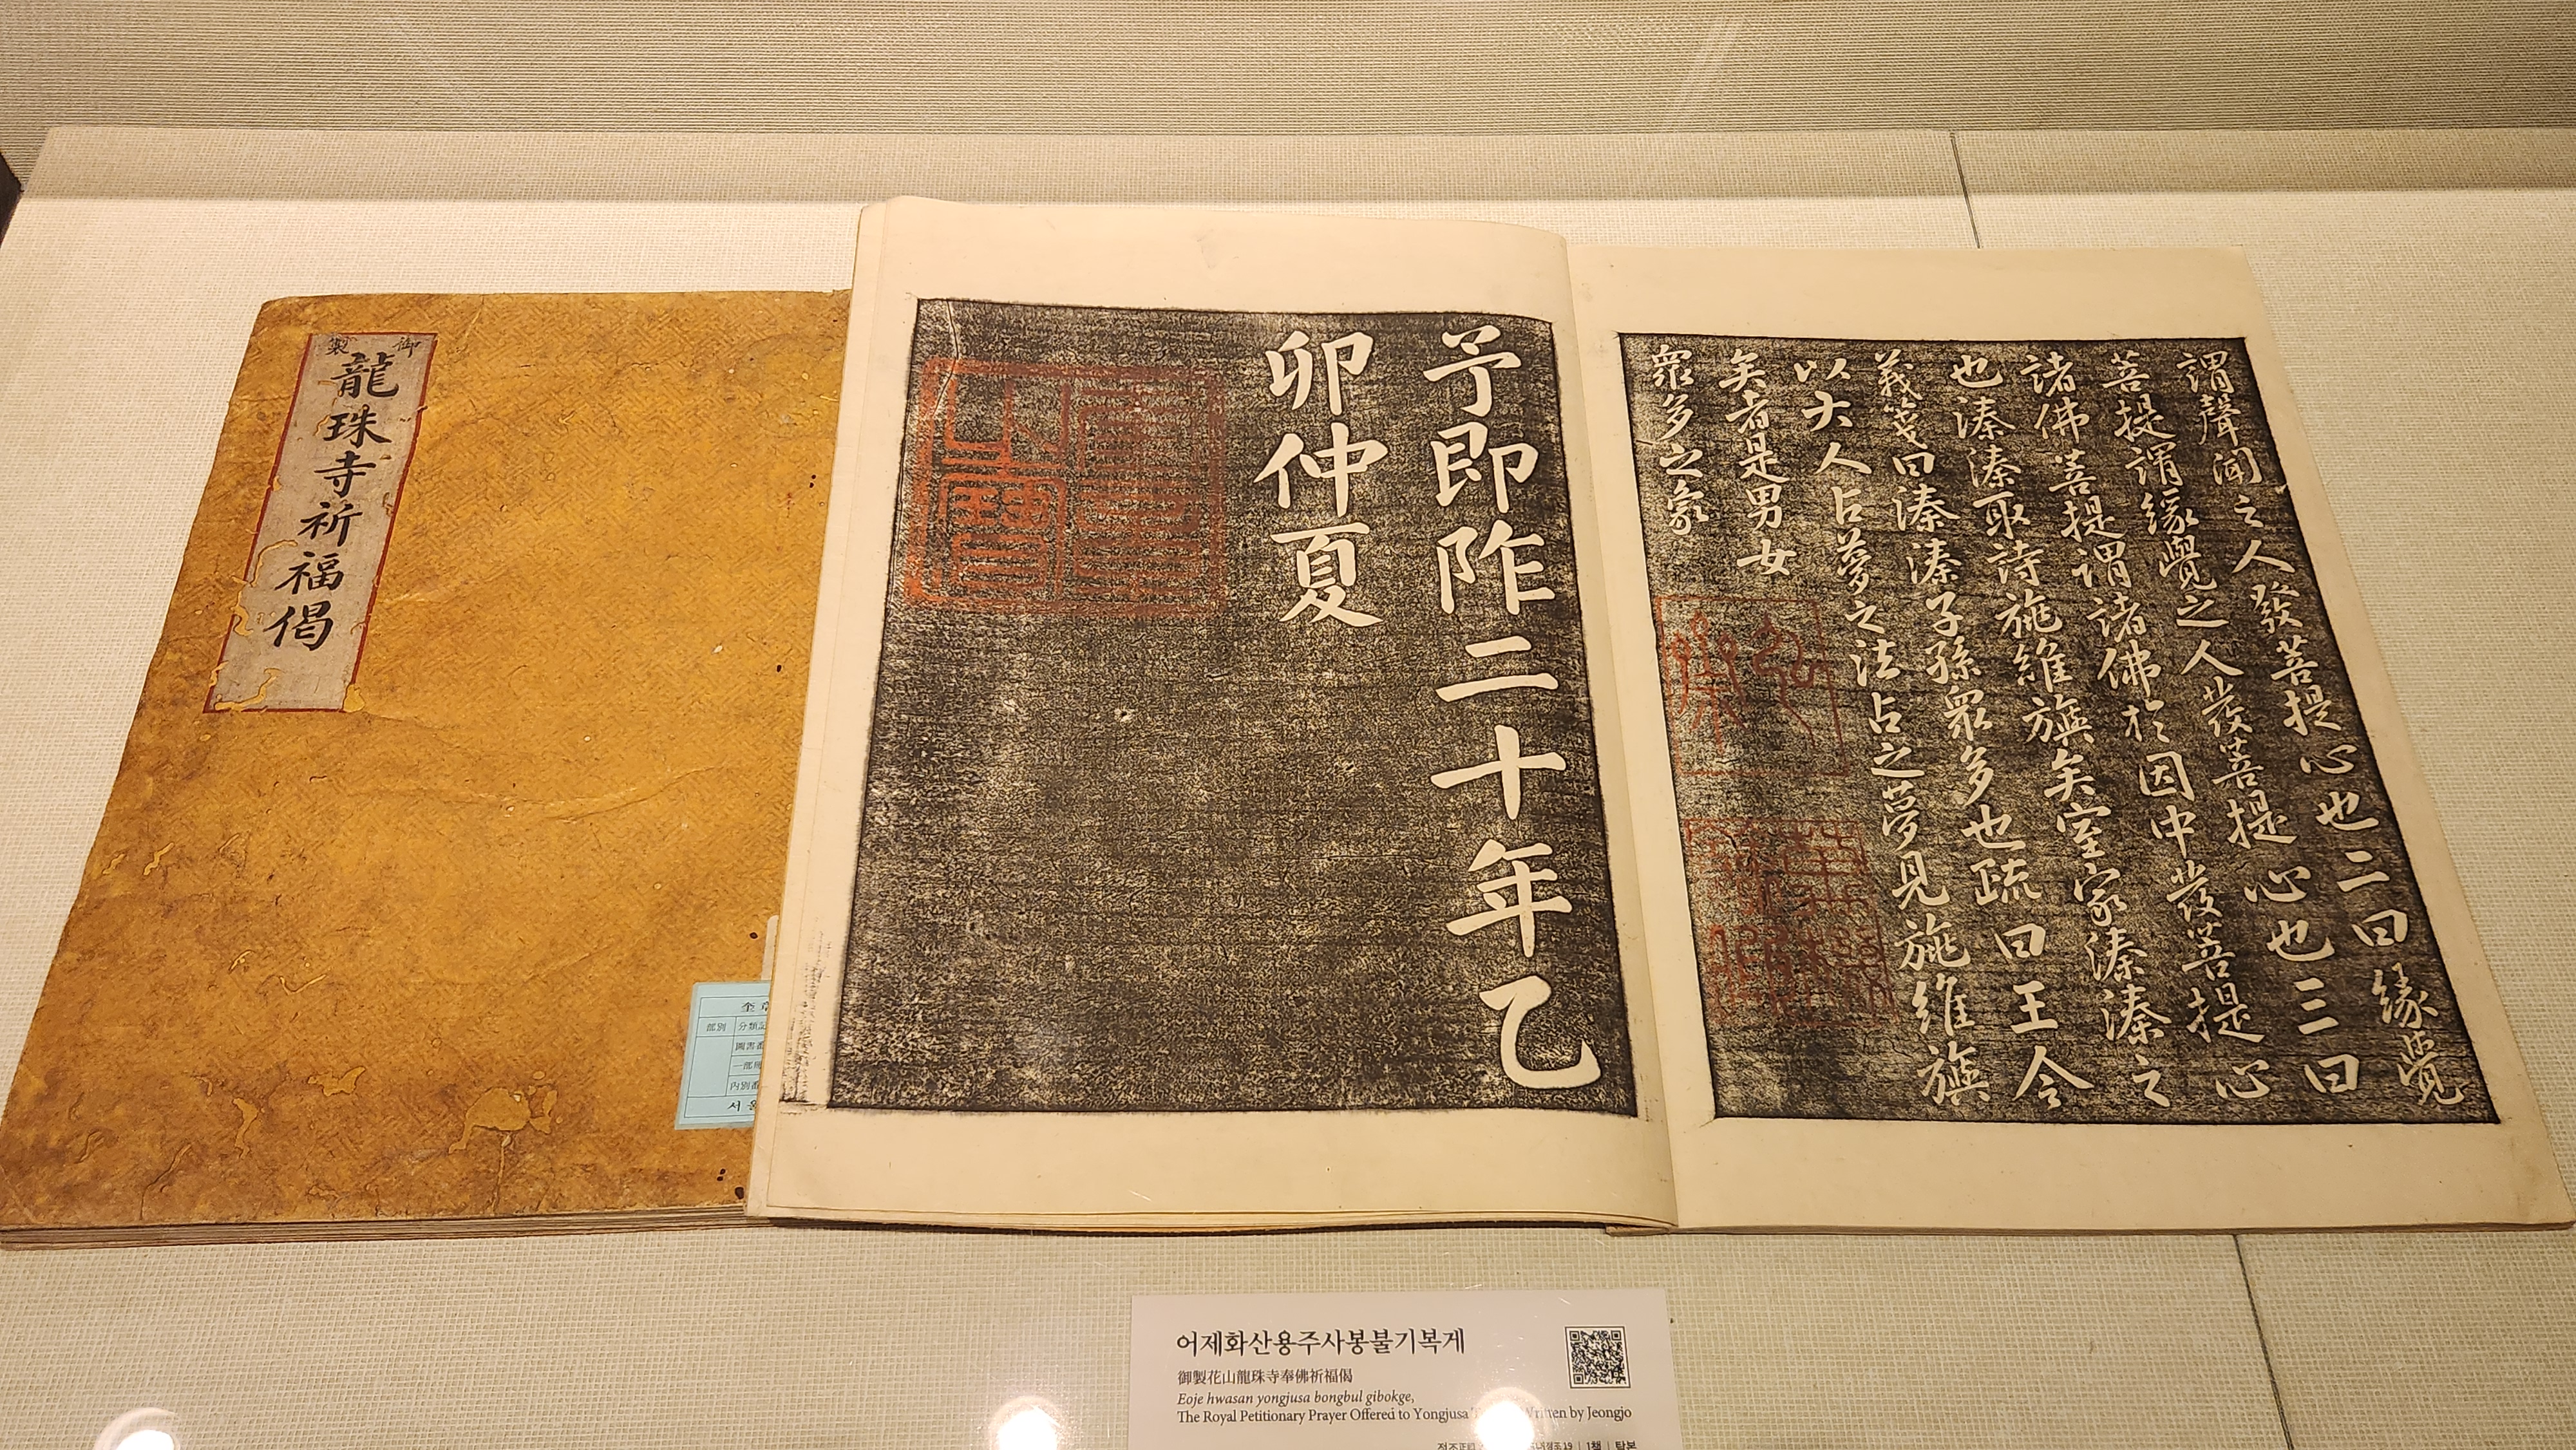 御製
龍珠寺祈福偈
謂聲聞之人發菩提心也二曰緣覺
菩提謂緣覺之人發菩提心也三曰
諸佛菩提謂諸佛於因中發菩提心
也溱溱取詩旐維旟矣室家溱溱之
義箋曰溱溱子孫衆多也疏曰王令
以大人占夢之法占之夢見旐維旟
矣者是男女
衆多之象
予即阼二十年乙
卯仲夏
部別
서울
어제화산용주사봉불기복게
御製花山龍珠寺奉佛祈福偈
Eoje hwasan yongjusa bongbul gibokge,
The Royal Petitionary Prayer Offered to Yongjusa Written by Jeongjo
1책 | 탑본